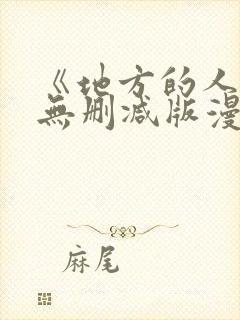 《地方的人
無删减版漫
麻尾